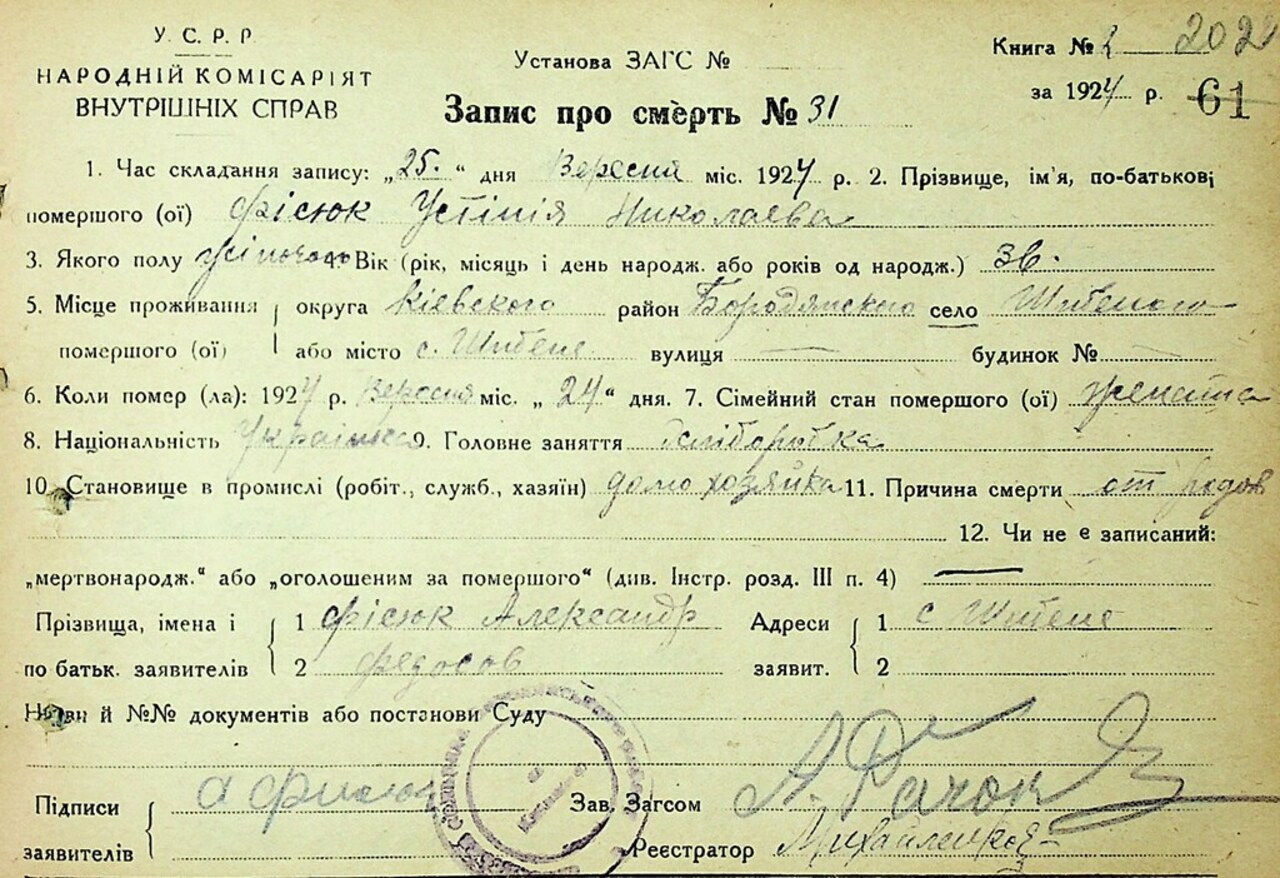 У. С. Р. Р
НАРОДНІЙ КОМІСАРІЯТ
ВНУТРІШНІХ СПРАВ
Установа ЗАГС №
Запис про смерть № 31
Книга № 2 202
за 1924 р. 61
1. Час складання запису: „25." дня Вересня міс. 1924 р. 2. Прізвище, ім'я, по-батькові
помершого (ої) Фісюк Устінія Николаева
3. Якого полу жіночого 4. Вік (рік, місяць і день народж. або років од народж.) 36.
5. Місце проживання округа Кіевского район Бородянского село Шибеного
помершого (ої) або місто с. Шибене вулиця — будинок №
6. Коли помер (ла): 1924 р. Вересня міс. „24" дня. 7. Сімейний стан помершого (ої) жената
8. Національність Украінка 9. Головне заняття хліборобка
10. Становище в промислі (робіт., служб., хазяїн) домохозяйка 11. Причина смерти от родов
12. Чи не є записаний:
„мертвонародж." або „оголошеним за помершого" (див. Інстр. розд. III п. 4) —
Прізвища, імена і 1 Фісюк Александр Адреси 1 с Шибене
по батьк. заявителів 2 Федосов заявит. 2
Назви й №№ документів або постанови Суду
Підписи А Фисюк Зав. Загсом А. Рачок
заявителів Реєстратор Михайленко